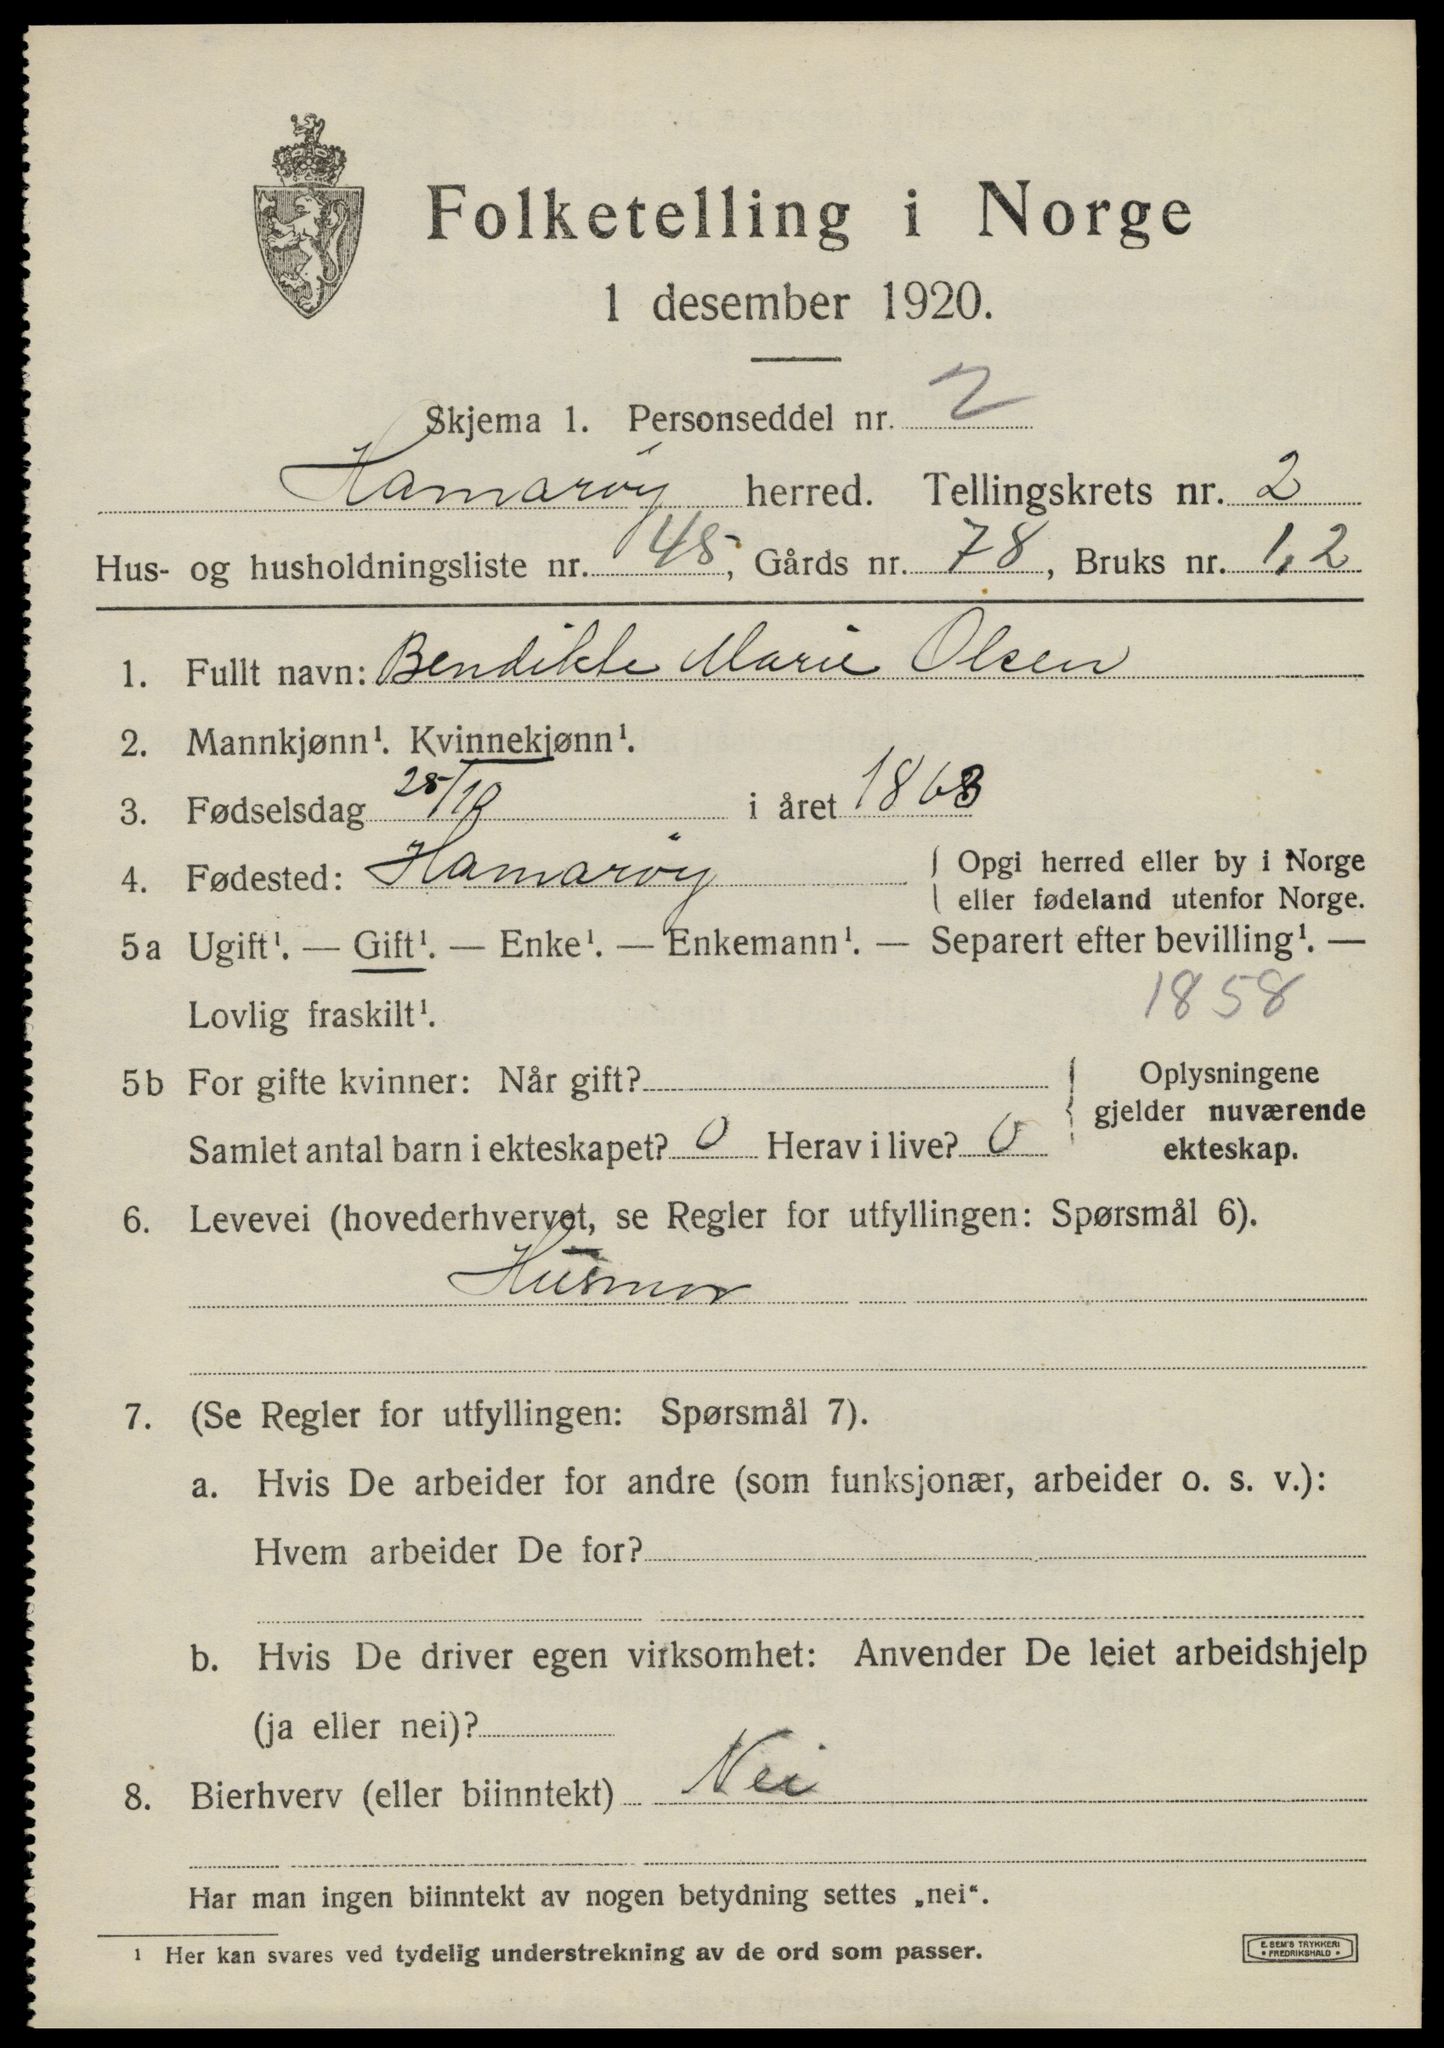 Folketelling i Norge
1 desember 1920.
Skjema 1. Personseddel nr. 2
Hamarøy herred. Tellingskrets nr. 2
Hus- og husholdningsliste nr. 45, Gårds nr. 78, Bruks nr. 1,2
1. Fullt navn: Bendikte Marie Olsen
2. Mannkjønn¹. Kvinnekjønn¹.
3. Fødselsdag 25/10 i året 1863
4. Fødested: Hamarøy { Opgi herred eller by i Norge
eller fødeland utenfor Norge.
5a Ugift¹. — Gift¹. — Enke¹. — Enkemann¹. — Separert efter bevilling¹. —
Lovlig fraskilt¹. 1858
5b For gifte kvinner: Når gift? { Oplysningene
gjelder nuværende
Samlet antal barn i ekteskapet? 0 Herav i live? 0 ekteskap.
6. Levevei (hovederhvervet, se Regler for utfyllingen: Spørsmål 6).
Husmor
7. (Se Regler for utfyllingen: Spørsmål 7).
a. Hvis De arbeider for andre (som funksjonær, arbeider o. s. v.):
Hvem arbeider De for?
b. Hvis De driver egen virksomhet: Anvender De leiet arbeidshjelp
(ja eller nei)?
8. Bierhverv (eller biinntekt) Nei
Har man ingen biinntekt av nogen betydning settes „nei“.
¹ Her kan svares ved tydelig understrekning av de ord som passer.
E. SEM'S TRYKKERI
• FREDRIKSHALD •